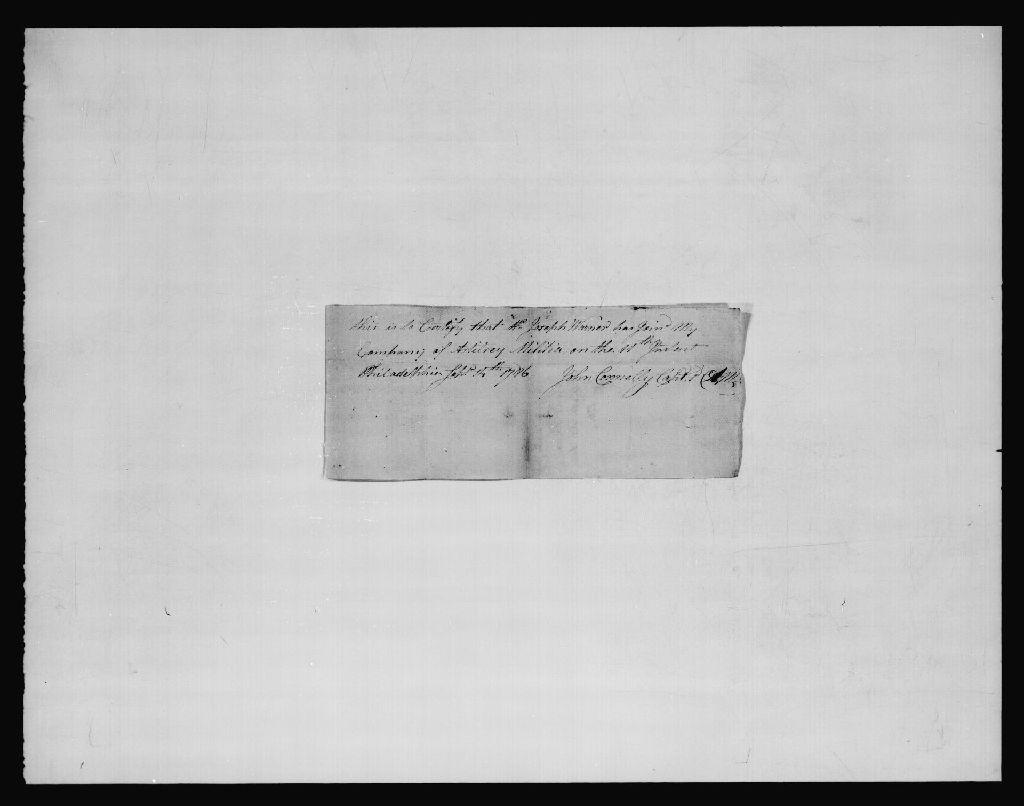 this is to Certify that Mr Joseph Turner has Join'd My
Company of Artilrey Militia on the 11th Instent
Philadelphia 12th 1776 John Connelly Capt.